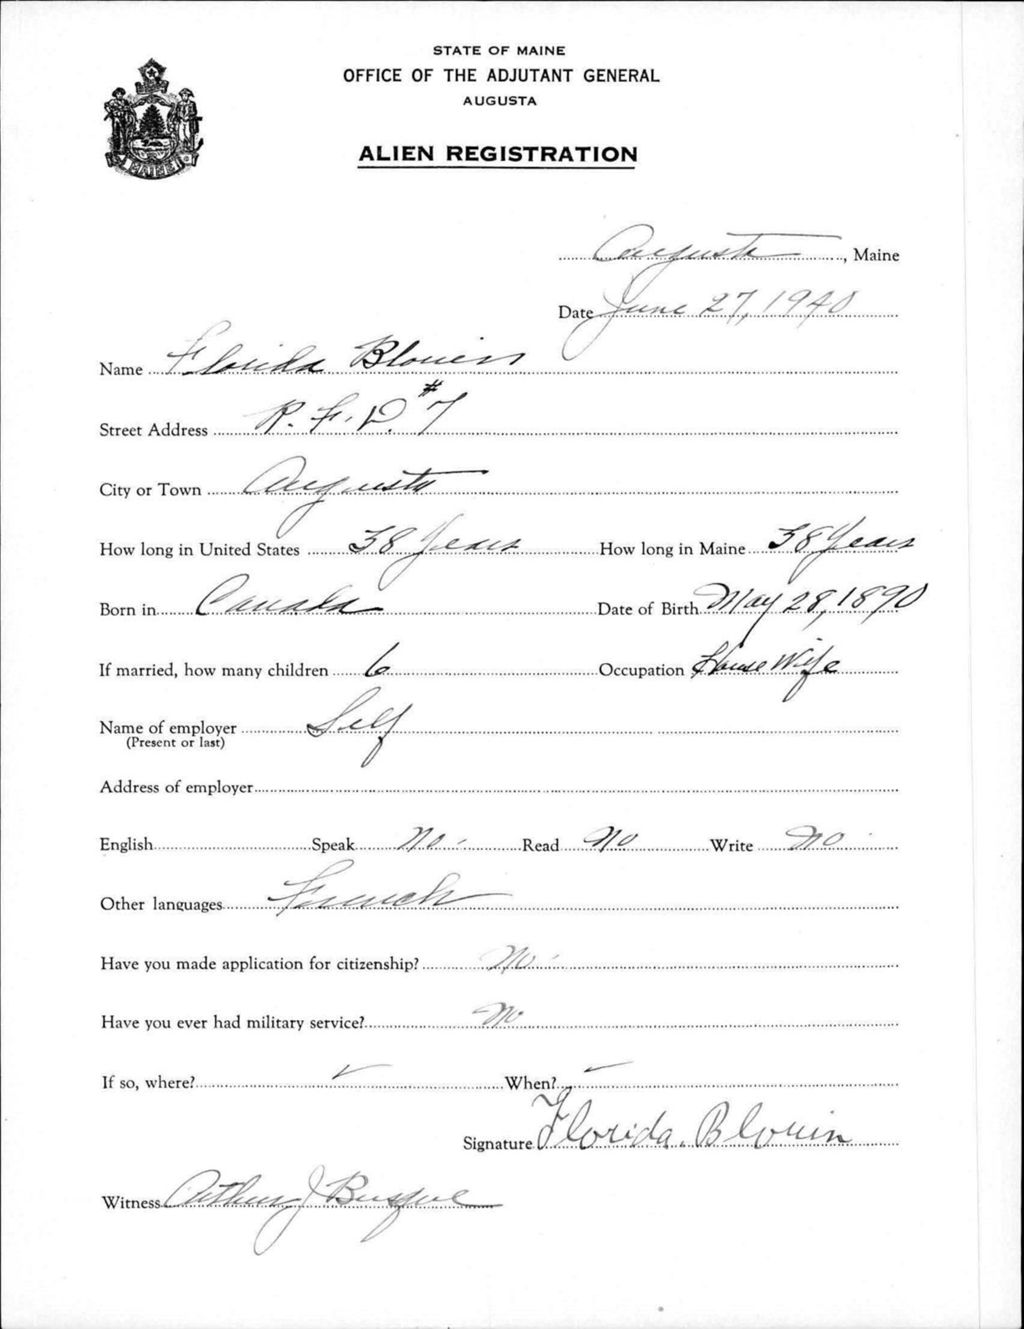 STATE OF MAINE
OFFICE OF THE ADJUTANT GENERAL
AUGUSTA
ALIEN REGISTRATION
MAINE
Augusta, Maine
Date June 27, 1940
Name Florida Blouin
Street Address R. F. D. #7
City or Town Augusta
How long in United States 38 Years How long in Maine 38 Years
Born in Canada Date of Birth May 28, 1890
If married, how many children 6 Occupation House Wife
Name of employer Self
(Present or last)
Address of employer
English Speak No. Read No Write No.
Other languages French
Have you made application for citizenship? No.
Have you ever had military service? No
If so, where? When?
Signature Florida. Blouin
Witness Arthur J